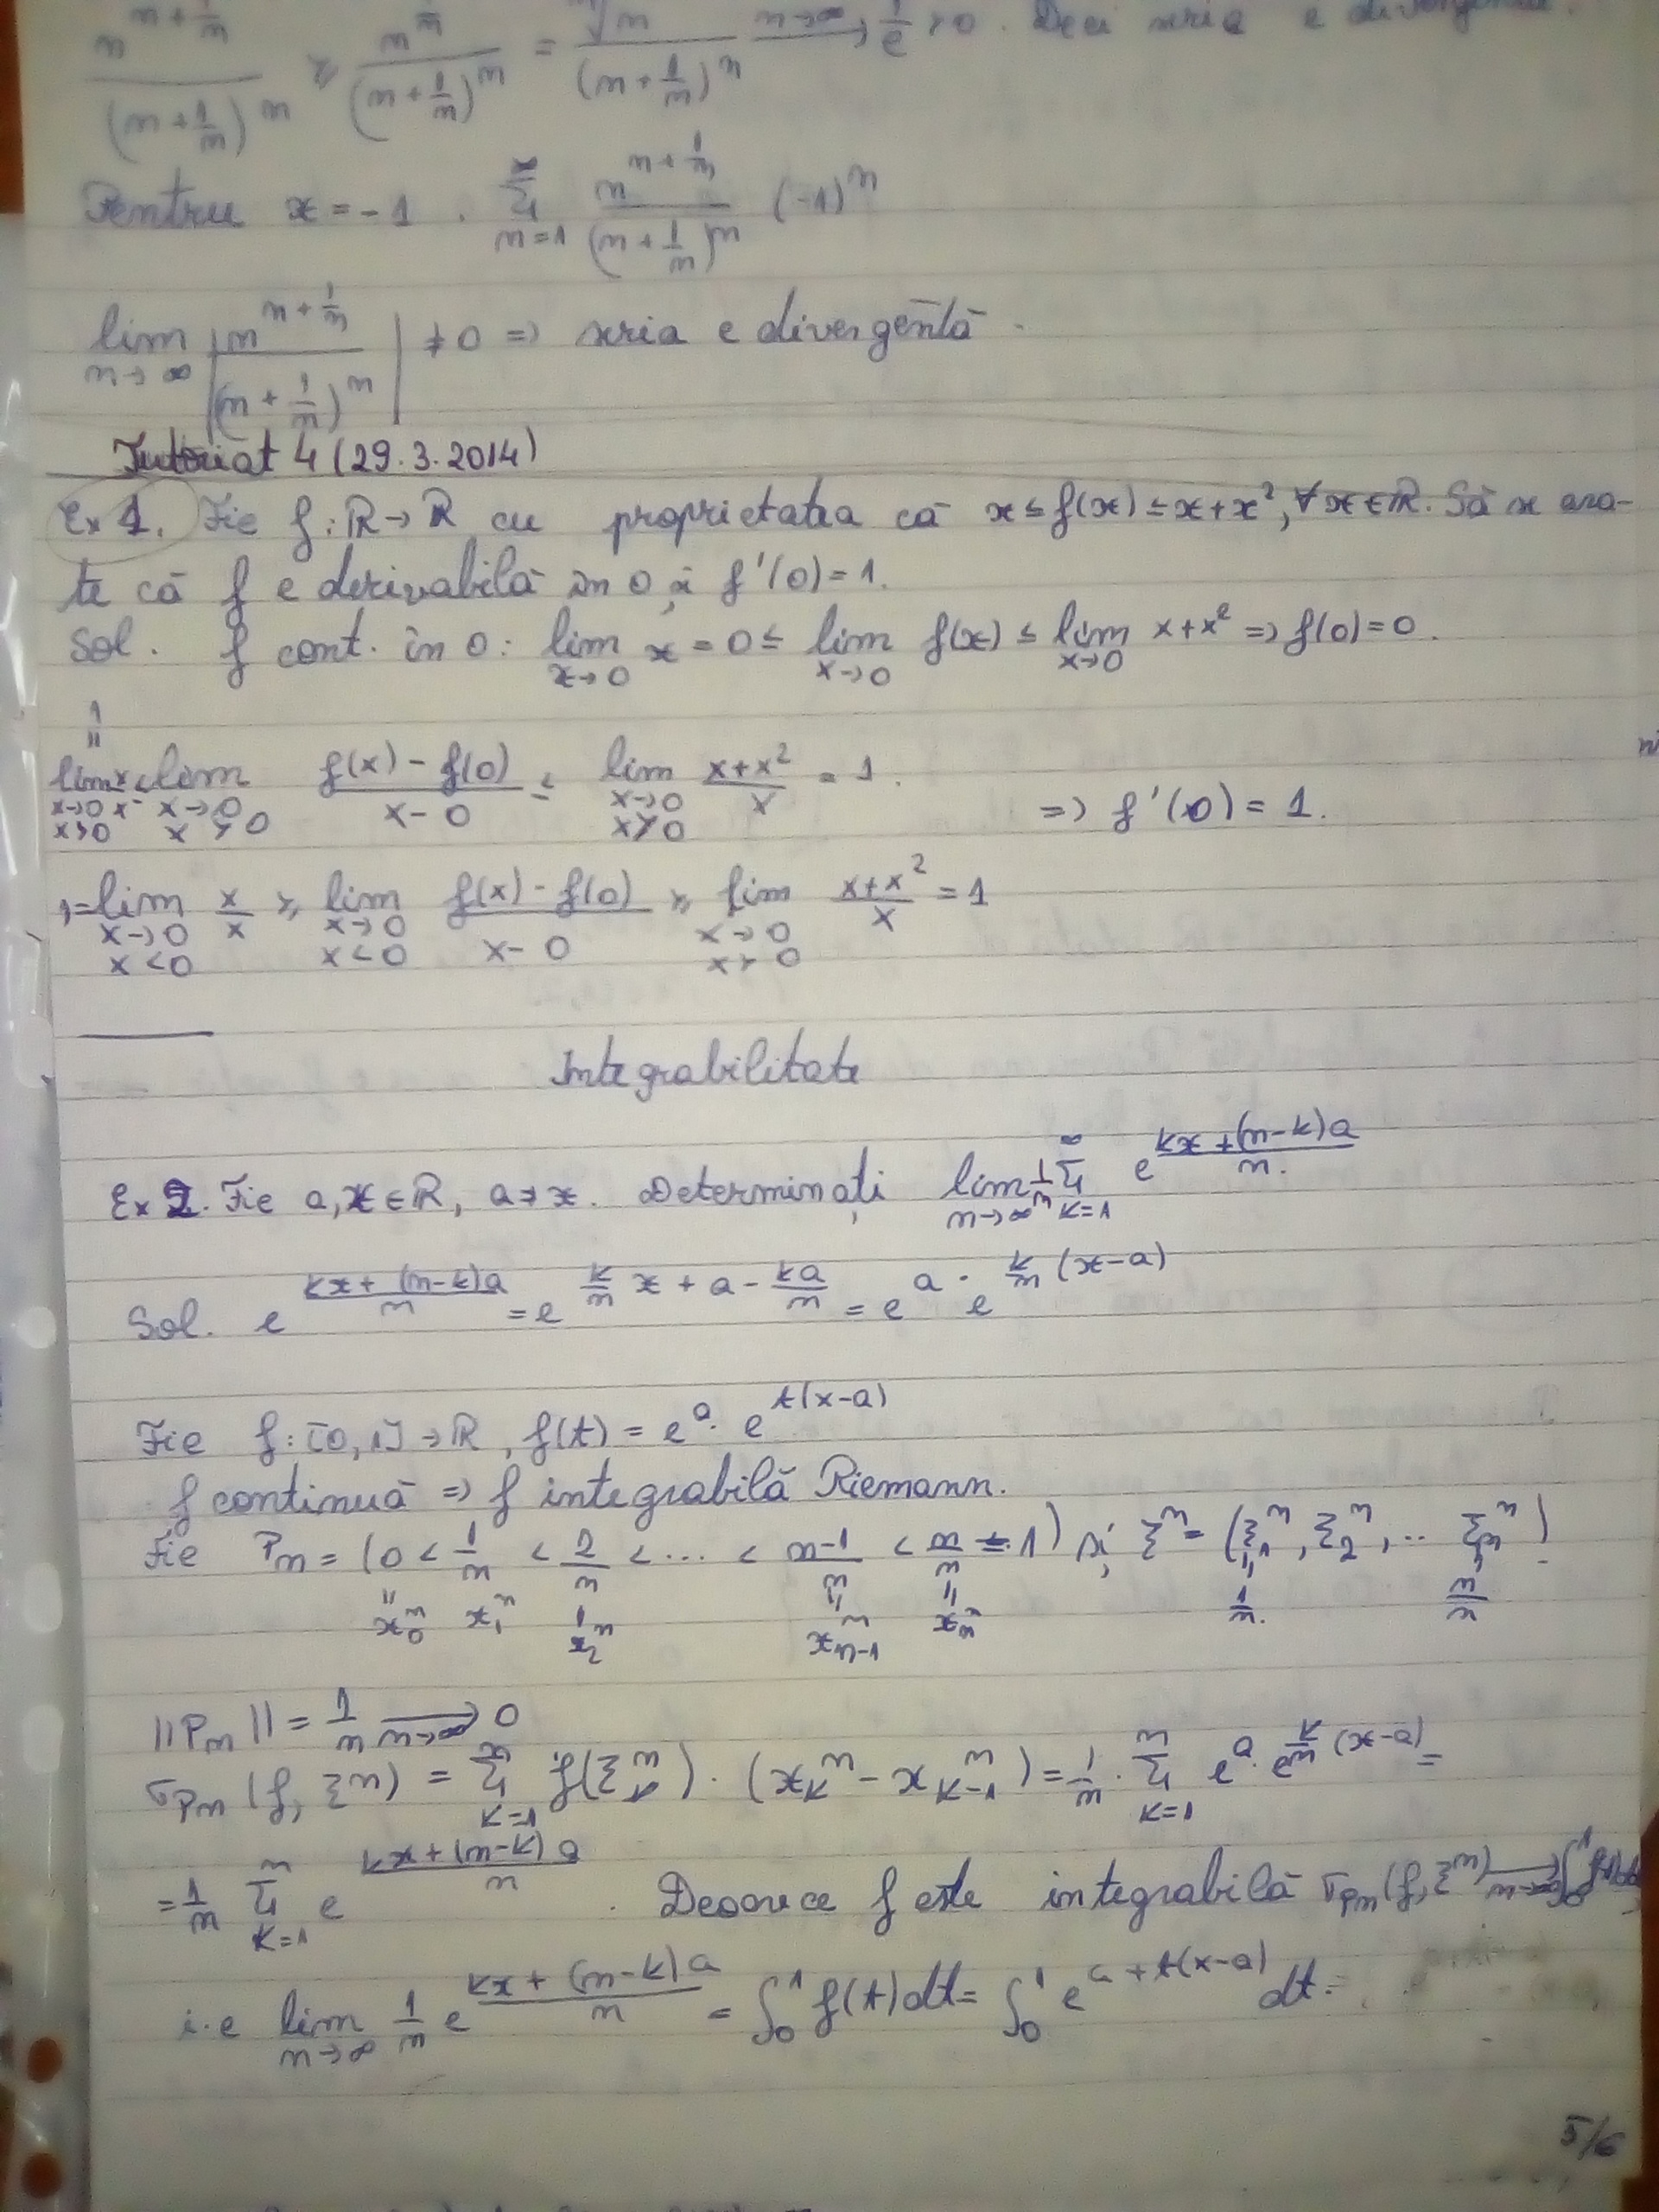 n^{n+1/n} / (n+1/n)^n ≥ n^{1/n} / (n+1/n)^n = ⁿ√n / (n+1/n)^n →_{n→∞} 1/e > 0. Deci seria e divergentă.
Pentru x = -1. ∑_{n=1}^{∞} n^{n+1/n} / (n+1/n)^n (-1)^n
lim_{n→∞} | n^{n+1/n} / (n+1/n)^n | ≠ 0 ⇒ seria e divergentă.
Tutoriat 4 (29.3.2014)
Ex 1. Fie f: ℝ→ℝ cu proprietatea că x ≤ f(x) ≤ x+x², ∀x∈ℝ. Să se ara-
te că f e derivabilă în 0 și f'(0)=1.
Sol. f cont. în 0: lim_{x→0} x = 0 ≤ lim_{x→0} f(x) ≤ lim_{x→0} x+x² ⇒ f(0)=0.
1 = lim_{x→0, x>0} x/x ≤ lim_{x→0, x>0} (f(x)-f(0))/(x-0) ≤ lim_{x→0, x>0} (x+x²)/x = 1.
⇒ f'(0) = 1.
1 = lim_{x→0, x<0} x/x ≥ lim_{x→0, x<0} (f(x)-f(0))/(x-0) ≥ lim_{x→0, x>0} (x+x²)/x = 1
Integrabilitate
Ex 2. Fie a,x∈ℝ, a≠x. Determinați lim_{n→∞} 1/n ∑_{k=1}^{∞} e^{(kx+(n-k)a)/n}.
Sol. e^{(kx+(n-k)a)/n} = e^{k/n x + a - ka/n} = e^a · e^{k/n (x-a)}
Fie f: [0,1]→ℝ, f(t) = e^a · e^{t(x-a)}
f continuă ⇒ f integrabilă Riemann.
Fie Pn = (0 < 1/n < 2/n < ... < (n-1)/n < n/n = 1) și ξ^n = (ξ_1^n, ξ_2^n, .. ξ_n^n)
= x_0^n x_1^n x_2^n x_{n-1}^n x_n^n 1/n. n/n
||Pn|| = 1/n →_{n→∞} 0
σ_{Pn}(f, ξ^n) = ∑_{k=1}^{n} f(ξ_k^n)·(x_k^n - x_{k-1}^n) = 1/n · ∑_{k=1}^{n} e^a · e^{k/n (x-a)} =
= 1/n ∑_{k=1}^{n} e^{(kx+(n-k)a)/n}. Deoarece f este integrabilă σ_{Pn}(f, ξ^n) →_{n→∞} ∫_0^1 f(t)dt,
i.e lim_{n→∞} 1/n e^{(kx+(n-k)a)/n} = ∫_0^1 f(t)dt = ∫_0^1 e^{a+t(x-a)} dt =
5/6